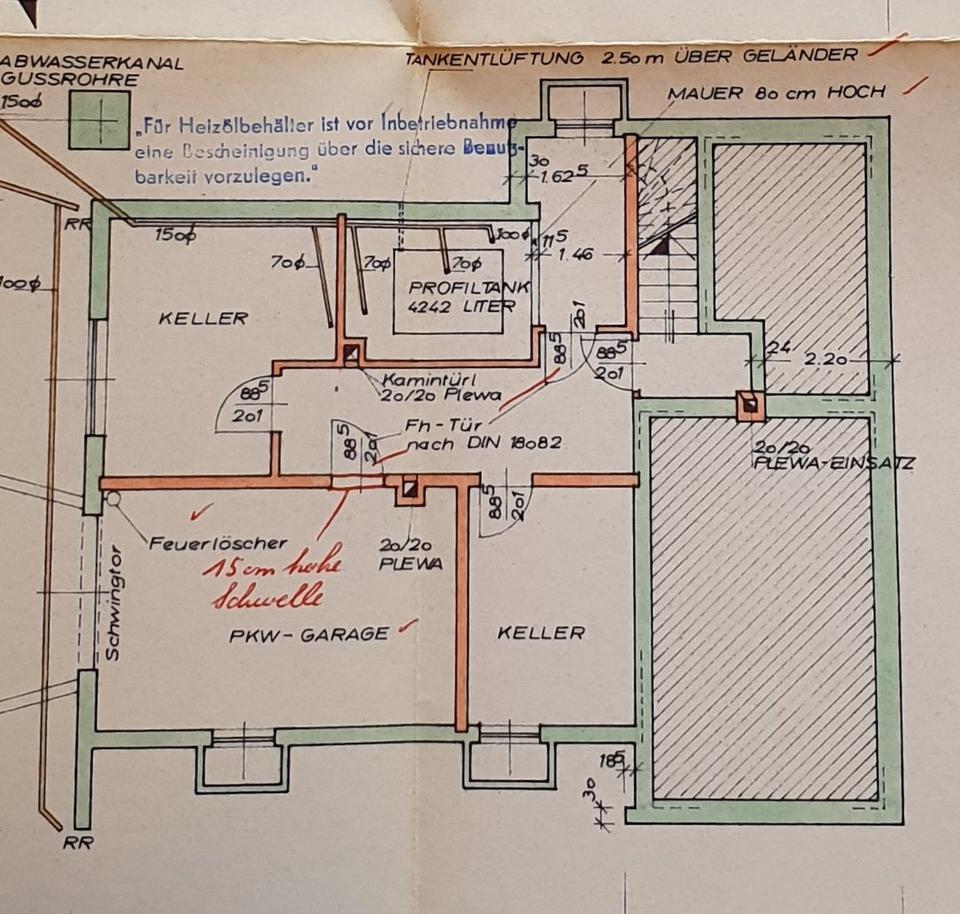 ABWASSERKANAL
GUSSROHRE
150ϕ
TANKENTLÜFTUNG 2.50 m ÜBER GELÄNDER
MAUER 80 cm HOCH
„Für Heizölbehälter ist vor Inbetriebnahme
eine Bescheinigung über die sichere Benutz-
barkeit vorzulegen."
30
1.62⁵
RR
150ϕ
100ϕ
11⁵
1.46
70ϕ
70ϕ
70ϕ
100ϕ
PROFILTANK
4242 LITER
KELLER
88⁵
201
88⁵
201
24
2.20
Kamintürl
20/20 Plewa
88⁵
201
Fh-Tür
nach DIN 18082
88⁵
201
20/20
PLEWA-EINSATZ
88⁵
201
Feuerlöscher
20/20
PLEWA
15 cm hohe
Schwelle
Schwingtor
PKW-GARAGE
KELLER
18⁵
30
RR